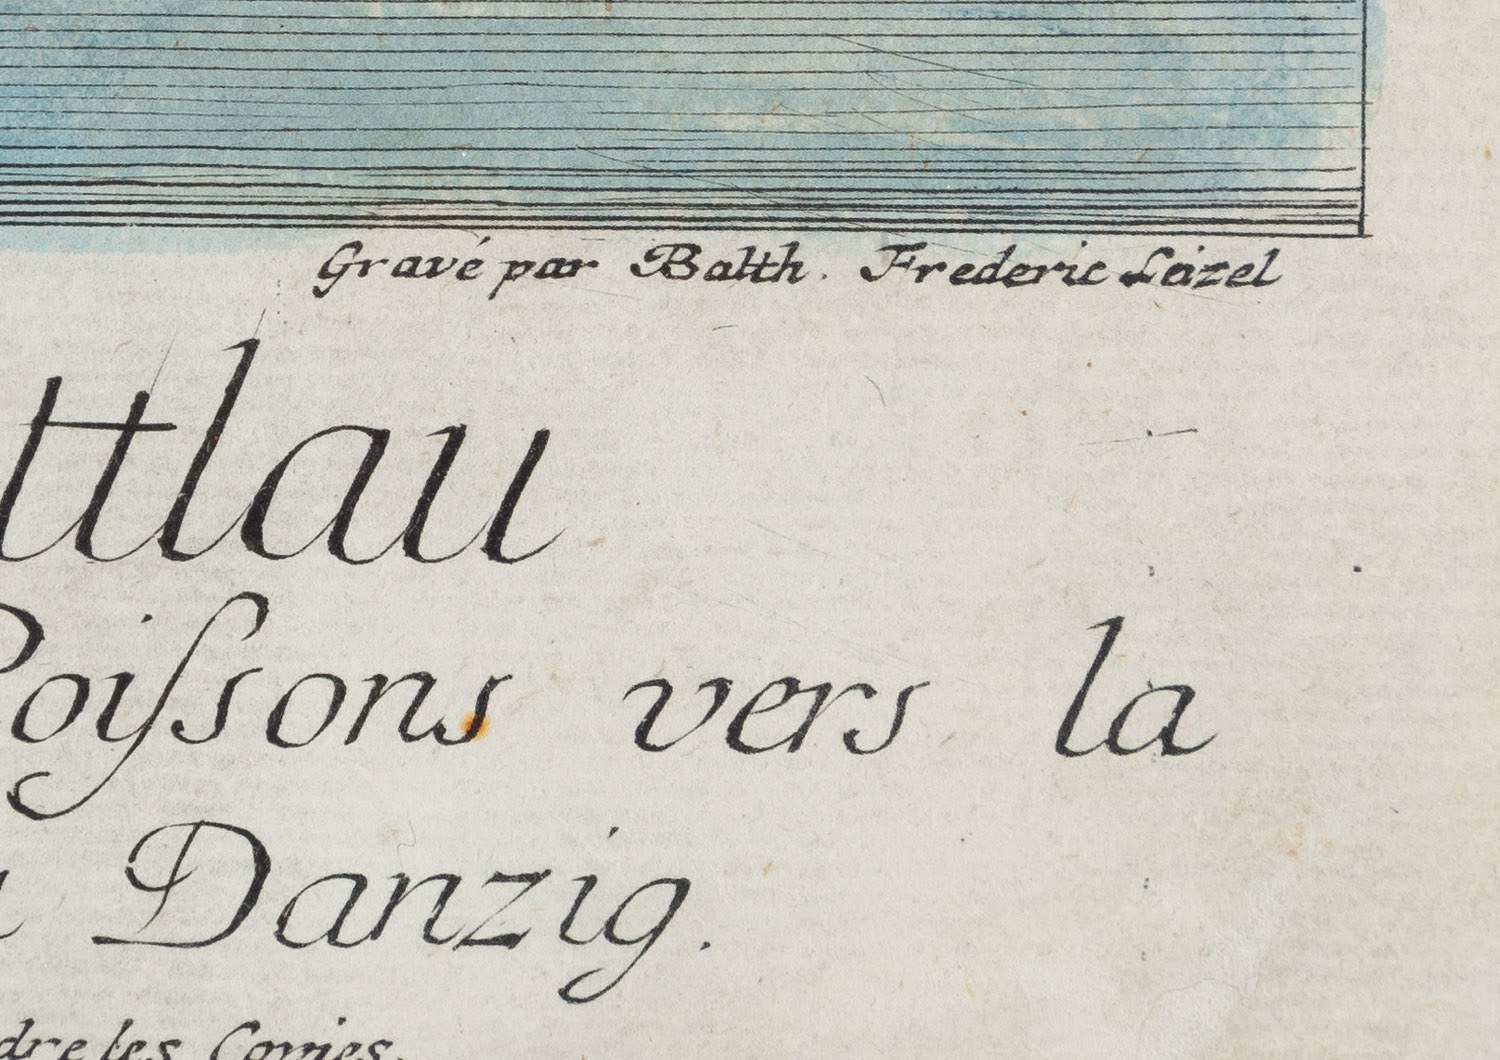 Gravé par Balth. Frederic Leizel
ttlau
Poiſsons vers la
Danzig.
dre les Copies.